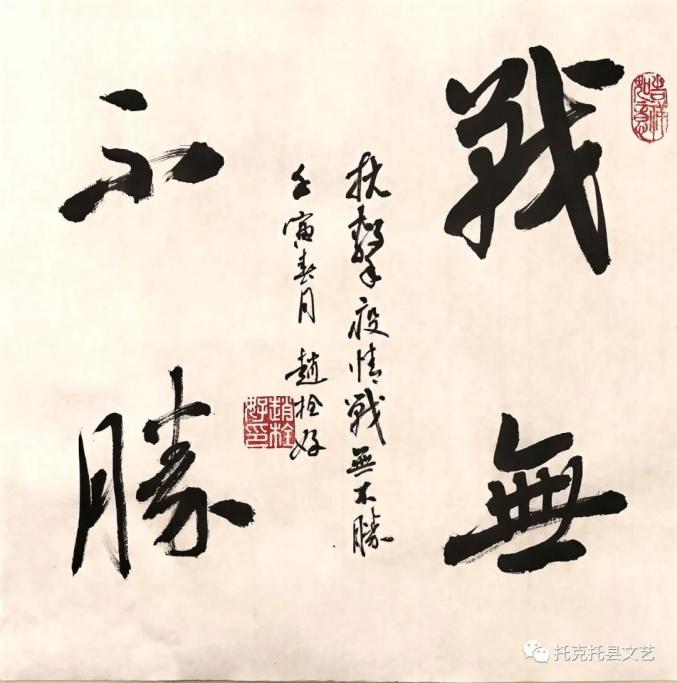 戰無
不勝
抗擊疫情戰無不勝
壬寅春月 趙拴好
趙拴
好印
托克托县文艺